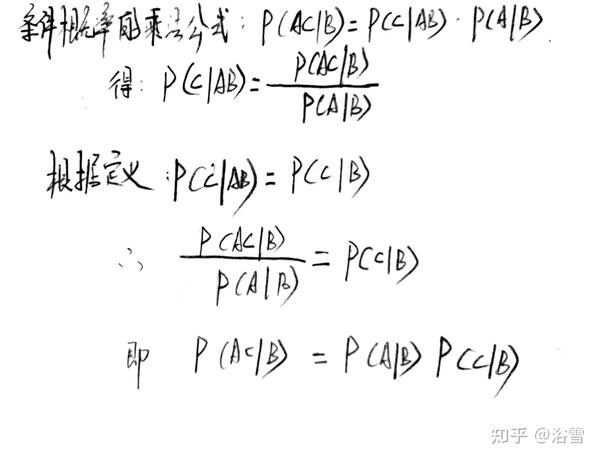 条件概率的乘法公式: P(AC|B)=P(C|AB)·P(A|B).
得: P(C|AB)=P(AC|B)/P(A|B)
根据定义:P(C|AB)=P(C|B)
∴ P(AC|B)/P(A|B)=P(C|B)
即 P(AC|B)=P(A|B)P(C|B)
知乎 @浴雪